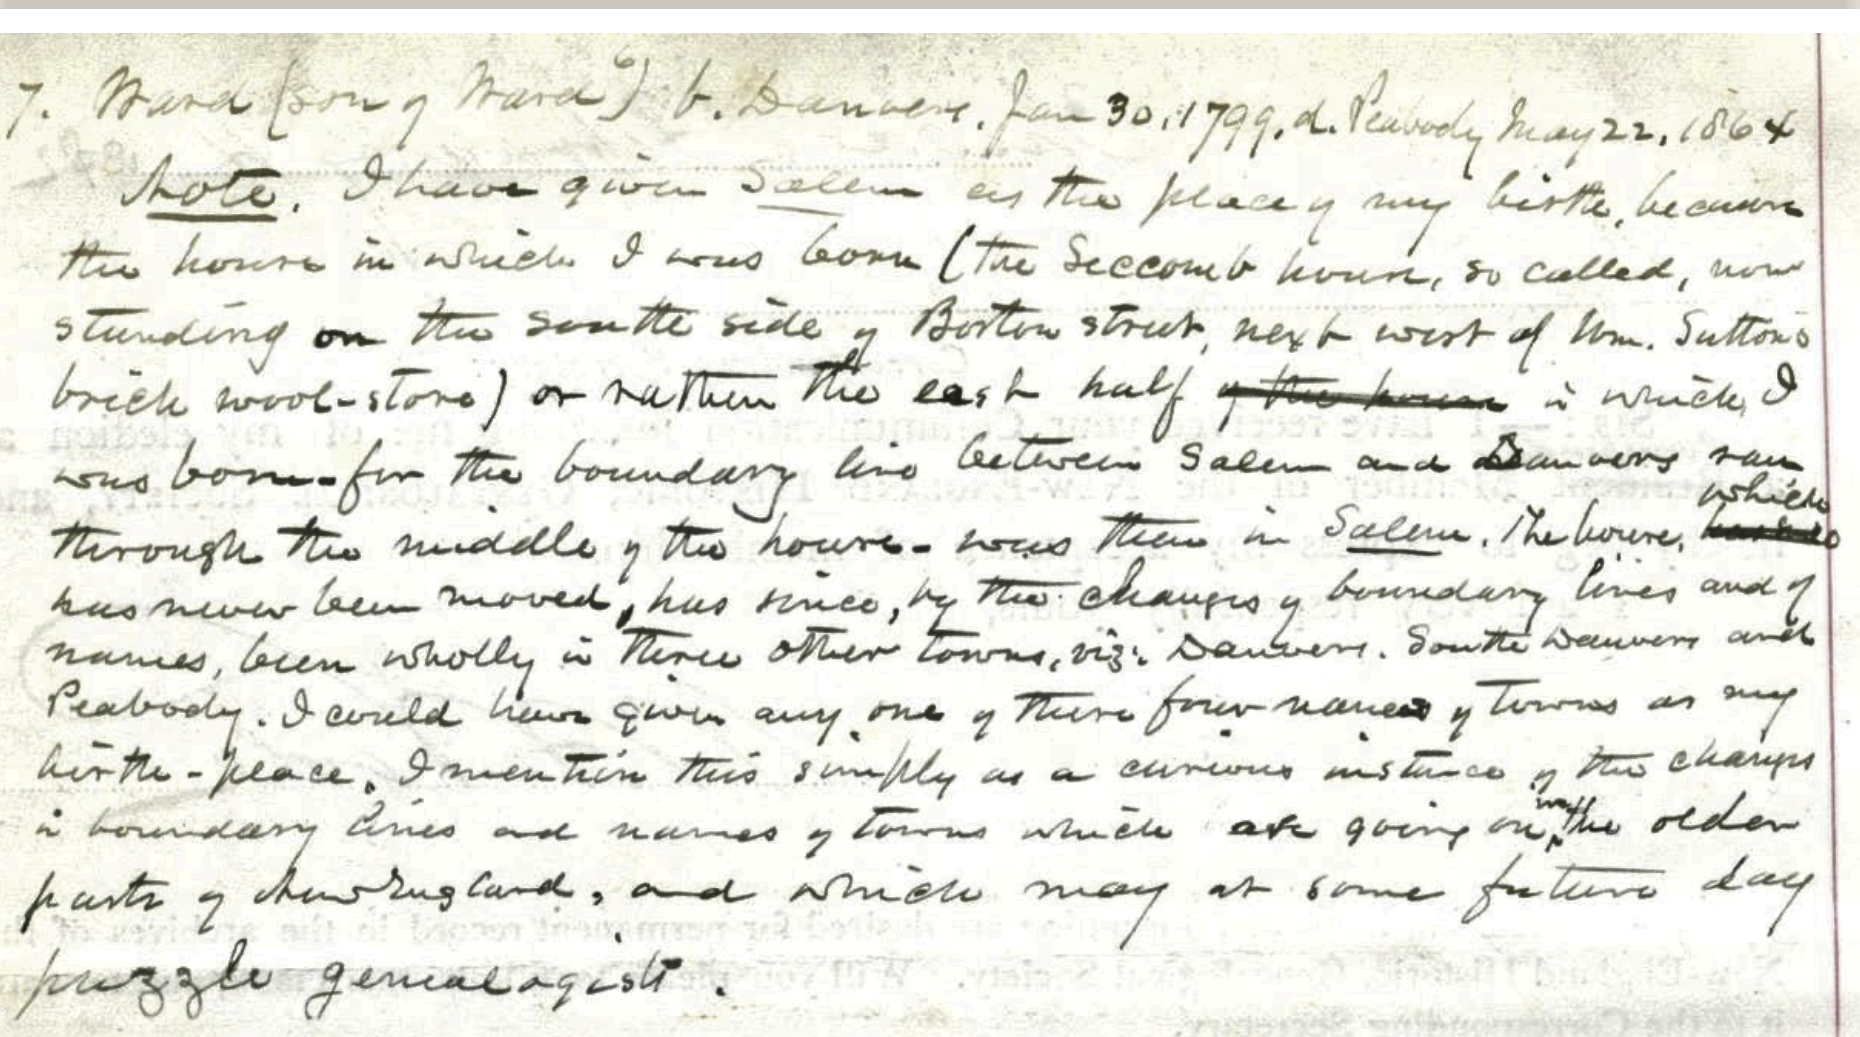 7. Ward (son of Ward⁶) b. Danvers, Jan 30, 1799, d. Peabody May 22, 1864
Note. I have given Salem as the place of my birth, because
the house in which I was born (the Seccomb house, so called, now
standing on the south side of Boston street, next west of Wm. Sutton's
brick wool-store) or rather the east half of the house in which I
was born - for the boundary line between Salem and Danvers ran
through the middle of the house - was then in Salem. The house, which
has never been moved, has since, by the changes of boundary lines and of
names, been wholly in three other towns, viz: Danvers, South Danvers and
Peabody. I could have given any one of these four names of towns as my
birth-place. I mention this simply as a curious instance of the changes
in boundary lines and names of towns which are going on in the older
parts of New England, and which may at some future day
puzzle genealogists.